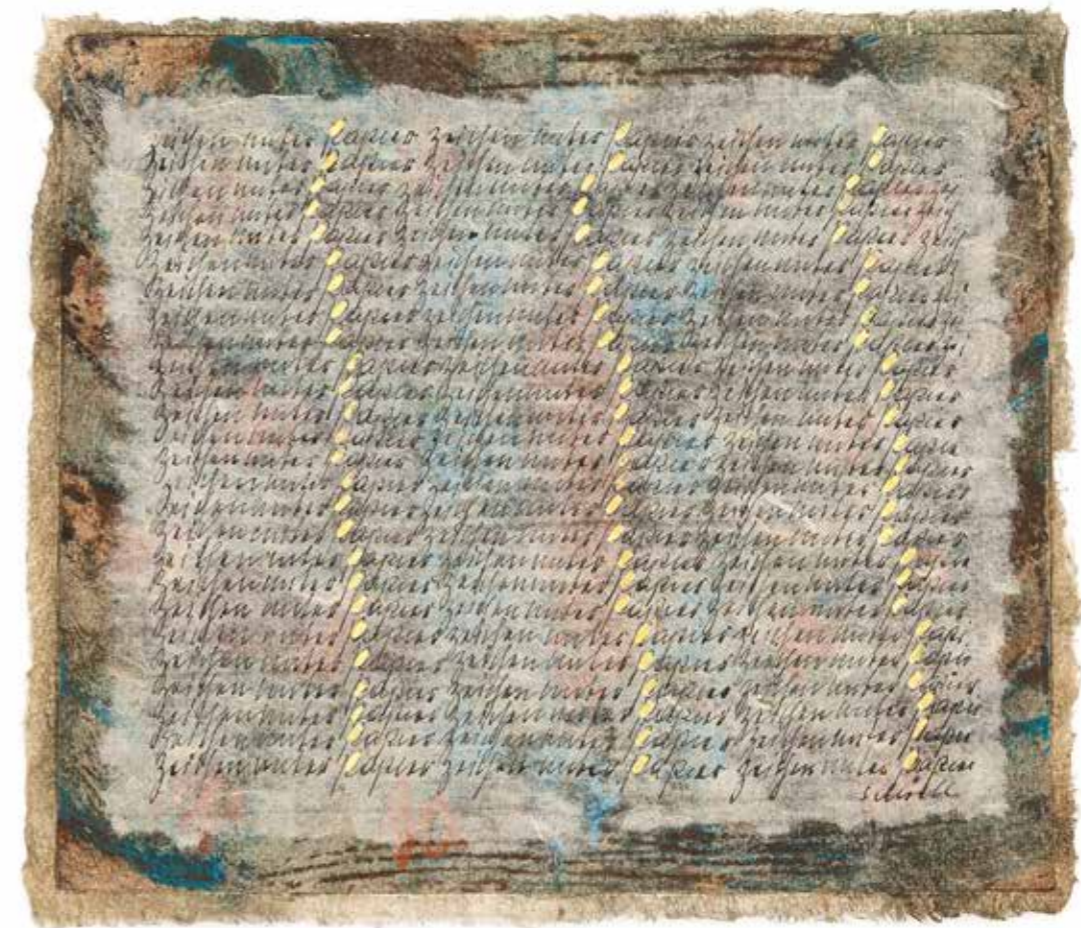 zeichen unter papier zeichen unter papier zeichen unter papier
zeichen unter papier zeichen unter papier zeichen unter papier
zeichen unter papier zeichen unter papier zeichen unter papier
zeichen unter papier zeichen unter papier zeichen unter papier
zeichen unter papier zeichen unter papier zeichen unter papier zeich
zeichen unter papier zeichen unter papier zeichen unter papier z
zeichen unter papier zeichen unter papier zeichen unter papier
zeichen unter papier zeichen unter papier zeichen unter papier
zeichen unter papier zeichen unter papier zeichen unter papier
zeichen unter papier zeichen unter papier zeichen unter papier
zeichen unter papier zeichen unter papier zeichen unter papier
zeichen unter papier zeichen unter papier zeichen unter papier
zeichen unter papier zeichen unter papier zeichen unter papie
zeichen unter papier zeichen unter papier zeichen unter papier
zeichen unter papier zeichen unter papier zeichen unter papier
zeichen unter papier zeichen unter papier zeichen unter papier
zeichen unter papier zeichen unter papier zeichen unter papier
zeichen unter papier zeichen unter papier zeichen unter papier
zeichen unter papier zeichen unter papier zeichen unter papier
zeichen unter papier zeichen unter papier zeichen unter papier
zeichen unter papier zeichen unter papier zeichen unter papi
zeichen unter papier zeichen unter papier zeichen unter papie
zeichen unter papier zeichen unter papier zeichen unter papier
zeichen unter papier zeichen unter papier zeichen unter papie
zeichen unter papier zeichen unter papier zeichen unter papier
zeichen unter papier zeichen unter papier zeichen unter papier